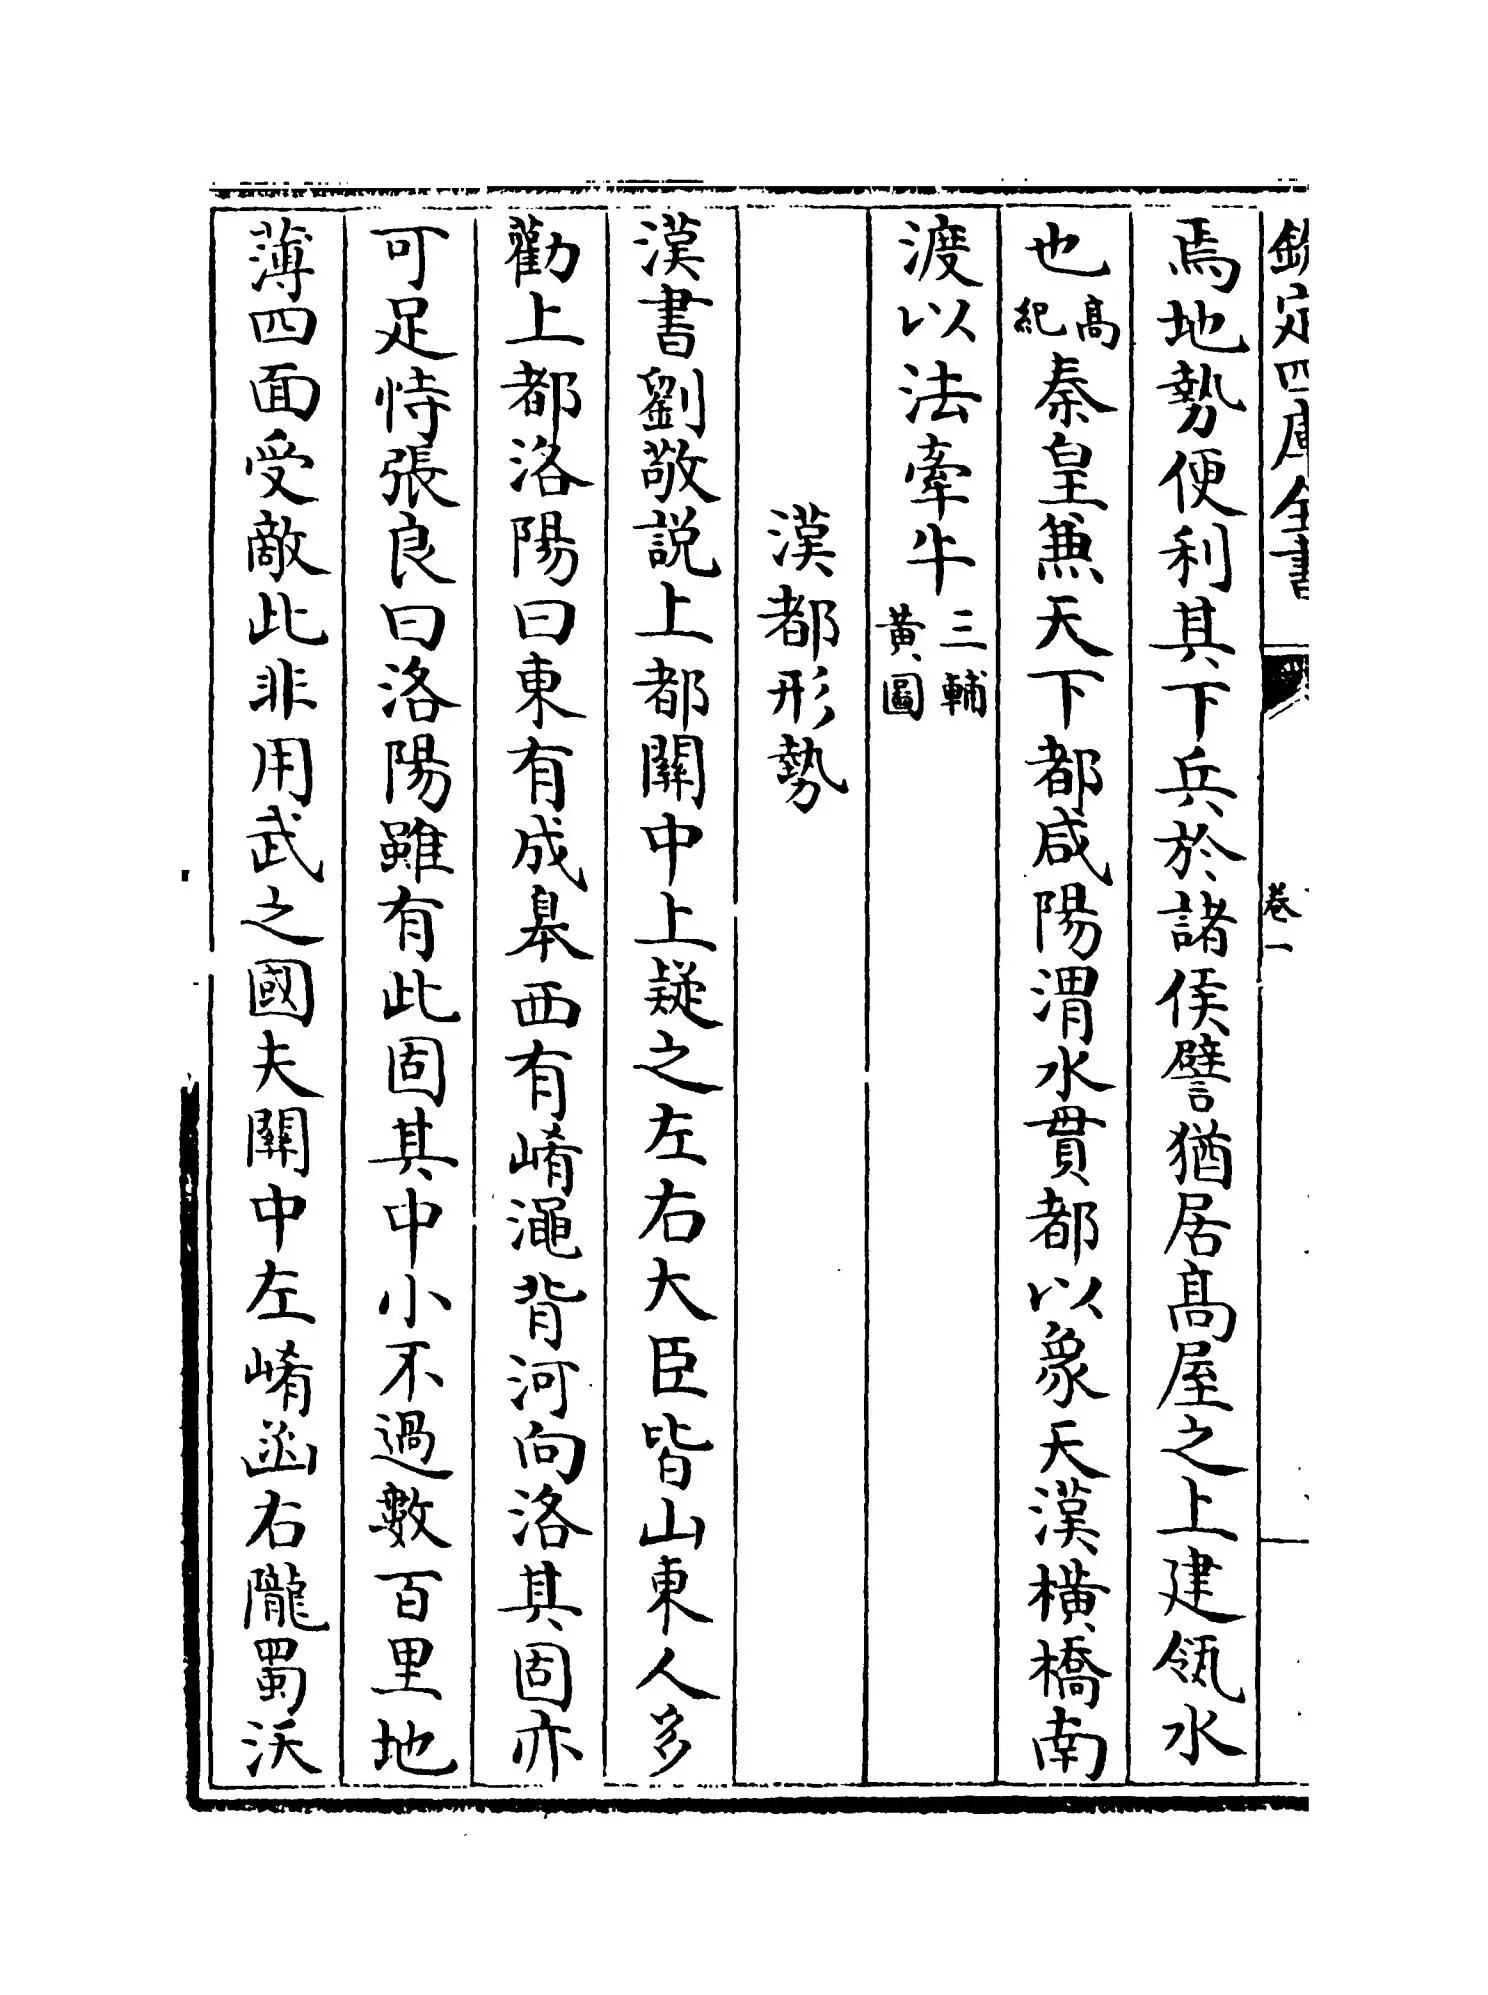 欽定四庫全書
卷一
焉地勢便利其下兵於諸侯譬猶居髙屋之上建瓴水
也髙紀秦皇兼天下都咸陽渭水貫都以象天漢橫橋南
渡以法牽牛三輔黄圖
漢都形勢
漢書劉敬説上都關中上疑之左右大臣皆山東人多
勸上都洛陽曰東有成臯西有崤澠背河向洛其固亦
可足恃張良曰洛陽雖有此固其中小不過數百里地
薄四面受敵此非用武之國夫關中左崤函右隴蜀沃